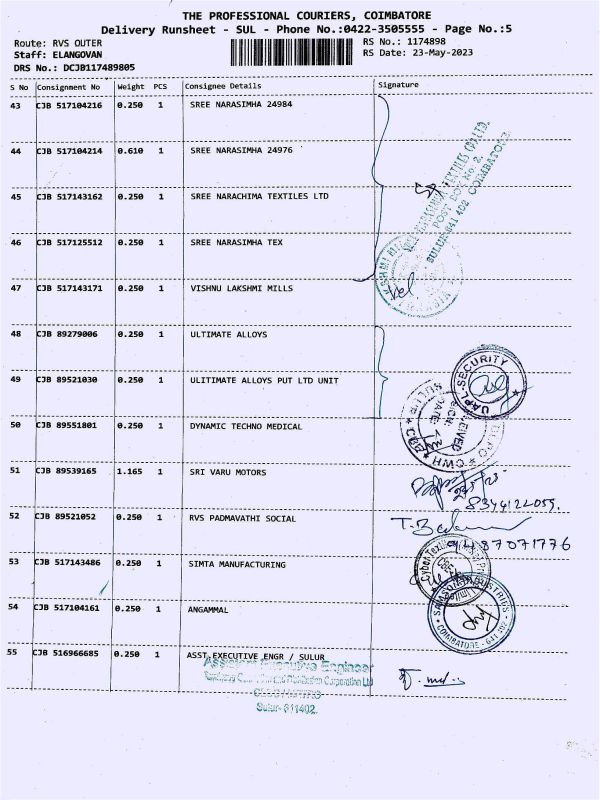 THE PROFESSIONAL COURIERS, COIMBATORE
Delivery Runsheet - SUL - Phone No.:0422-3505555 - Page No.:5
Route: RVS OUTER
Staff: ELANGOVAN
DRS No.: DCJB117489805
RS No.: 1174898
RS Date: 23-May-2023
S No Consignment No Weight PCS Consignee Details Signature
43 CJB 517104216 0.250 1 SREE NARASIMHA 24984
44 CJB 517104214 0.610 1 SREE NARASIMHA 24976
45 CJB 517143162 0.250 1 SREE NARACHIMA TEXTILES LTD
46 CJB 517125512 0.250 1 SREE NARASIMHA TEX
47 CJB 517143171 0.250 1 VISHNU LAKSHMI MILLS
48 CJB 89279006 0.250 1 ULTIMATE ALLOYS
49 CJB 89521030 0.250 1 ULITIMATE ALLOYS PUT LTD UNIT
50 CJB 89551801 0.250 1 DYNAMIC TECHNO MEDICAL
51 CJB 89539165 1.165 1 SRI VARU MOTORS
52 CJB 89521052 0.250 1 RVS PADMAVATHI SOCIAL
53 CJB 517143486 0.250 1 SIMTA MANUFACTURING
54 CJB 517104161 0.250 1 ANGAMMAL
55 CJB 516966685 0.250 1 ASST.EXECUTIVE ENGR / SULUR
POST BOX No: 2,
SULUR-641 402 COIMBATORE
UAPL-SECURITY
8344122059.
9487071776
COIMBATORE - 641 402
Assistant Executive Engineer